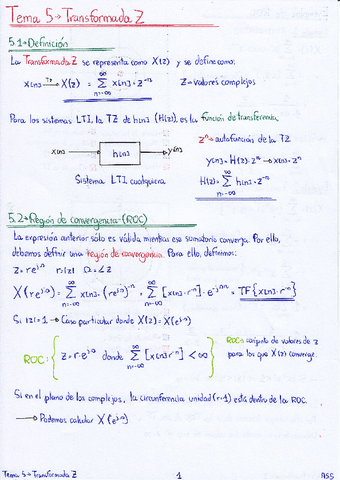 Tema 5 → Transformada Z
5.1 → Definición
La Transformada Z se representa como X(z) y se define como:
x[n] —TZ→ X(z) = ∑_{n=-∞}^{∞} x[n]·z^{-n}    Z → valores complejos
Para los sistemas LTI, la TZ de h[n] (H(z)), es la función de transferencia
x[n] → h[n] → y[n]
Sistema LTI cualquiera
z^n → autofunción de la TZ
y[n] = H(z)·z^n → x[n]·z^n
H(z) = ∑_{n=-∞}^{∞} h[n]·z^{-n}
5.2 → Región de convergencia → (ROC)
La expresión anterior sólo es válida mientras ese sumatorio converja. Por ello,
debemos definir una región de convergencia. Para ello, definimos:
z = re^{jΩ}    r = |z|    Ω = ∠z
X(re^{jΩ}) = ∑_{n=-∞}^{∞} x[n]·(re^{jΩ})^{-n} = ∑_{n=-∞}^{∞} [x[n]·r^{-n}]·e^{-jΩn} = TF{x[n]·r^{-n}}
Si |z| = 1 → Caso particular donde X(z) = X(e^{jΩ})
ROC: { z = re^{jΩ} donde ∑_{n=-∞}^{∞} [x[n]r^{-n}] < ∞ }
ROC: conjunto de valores de z
para los que X(z) converge.
Si en el plano de los complejos, la circunferencia unidad (r=1) está dentro de la ROC.
→ Podemos calcular X(e^{jΩ})
Tema 5 → Transformada Z    1    ASS